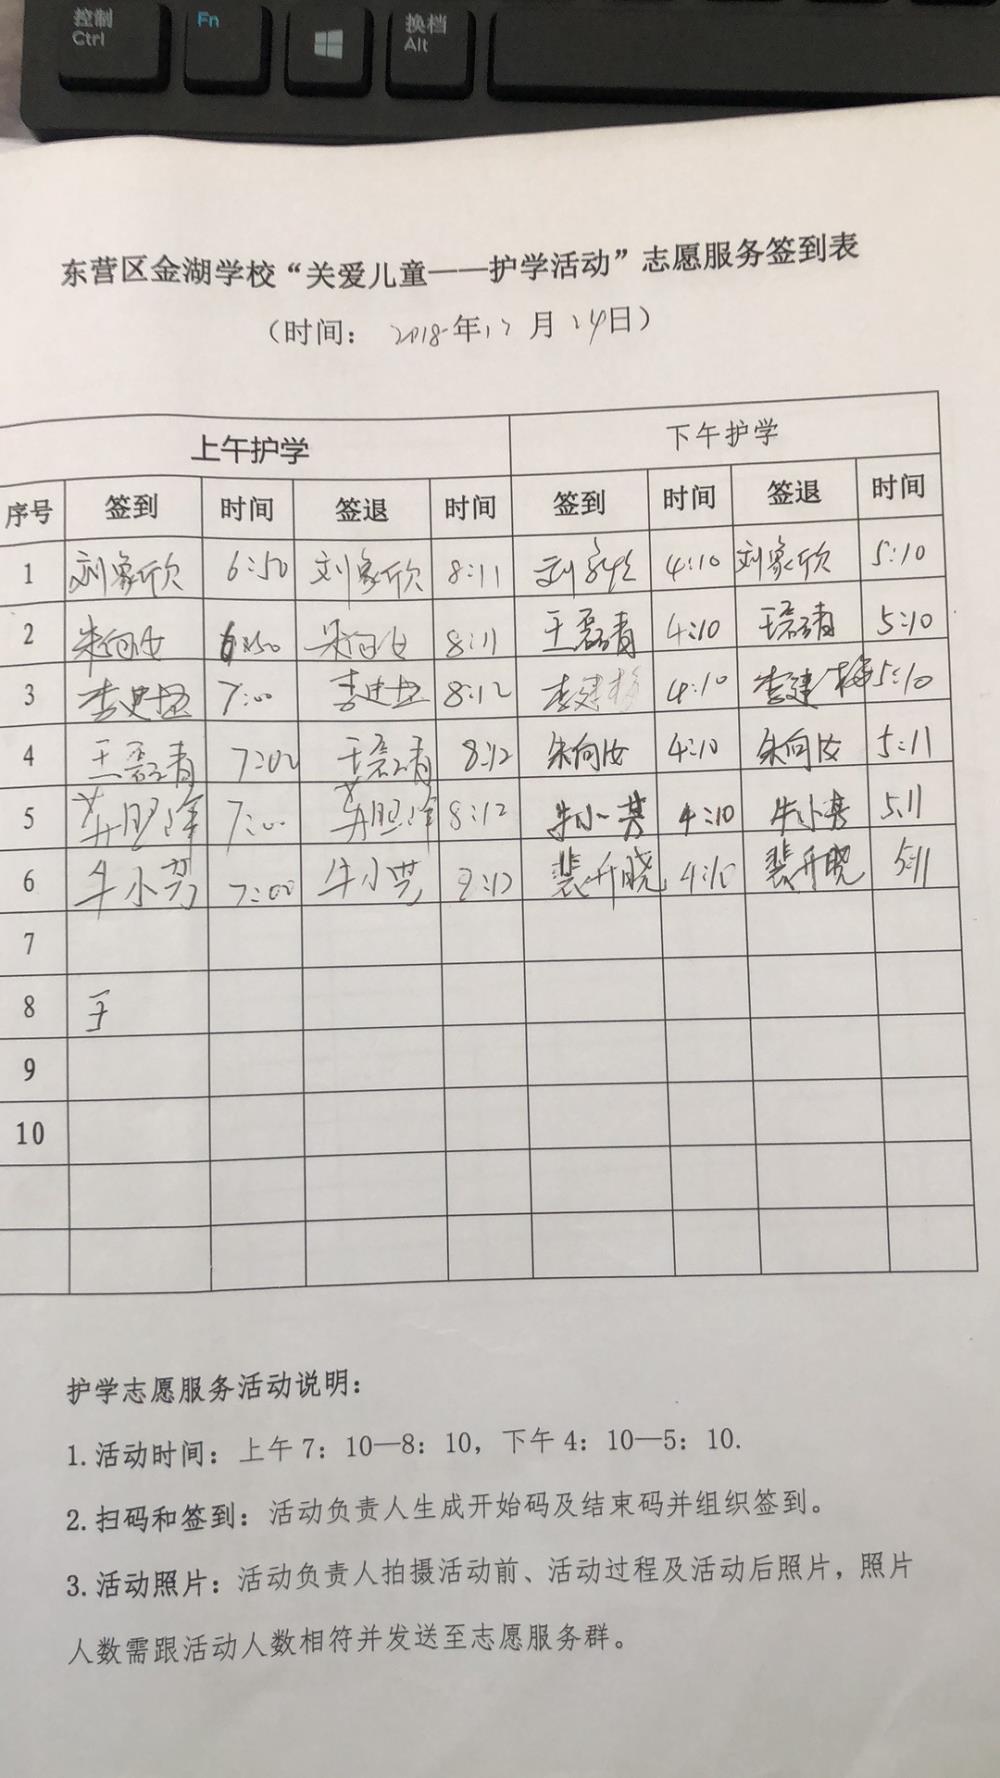 控制
Ctrl
Fn
换档
Alt
东营区金湖学校“关爱儿童——护学活动”志愿服务签到表
（时间： 2018年12月24日）
上午护学 下午护学
序号 签到 时间 签退 时间 签到 时间 签退 时间
1 刘家欣 6:50 刘家欣 8:11 刘家欣 4:10 刘家欣 5:10
2 朱向女 6:50 朱向女 8:11 王磊青 4:10 王磊青 5:10
3 7:00 8:12 李建梅 4:10 李建梅 5:10
4 王磊青 7:00 王磊青 8:12 朱向汝 4:10 朱向汝 5:11
5 7:00 8:12 牛小芳 4:10 5:11
6 7:00 裴开晓 4:10 裴开晓 5:11
7
8
9
10
护学志愿服务活动说明：
1.活动时间：上午 7：10—8：10，下午 4：10—5：10.
2.扫码和签到：活动负责人生成开始码及结束码并组织签到。
3.活动照片：活动负责人拍摄活动前、活动过程及活动后照片，照片
人数需跟活动人数相符并发送至志愿服务群。